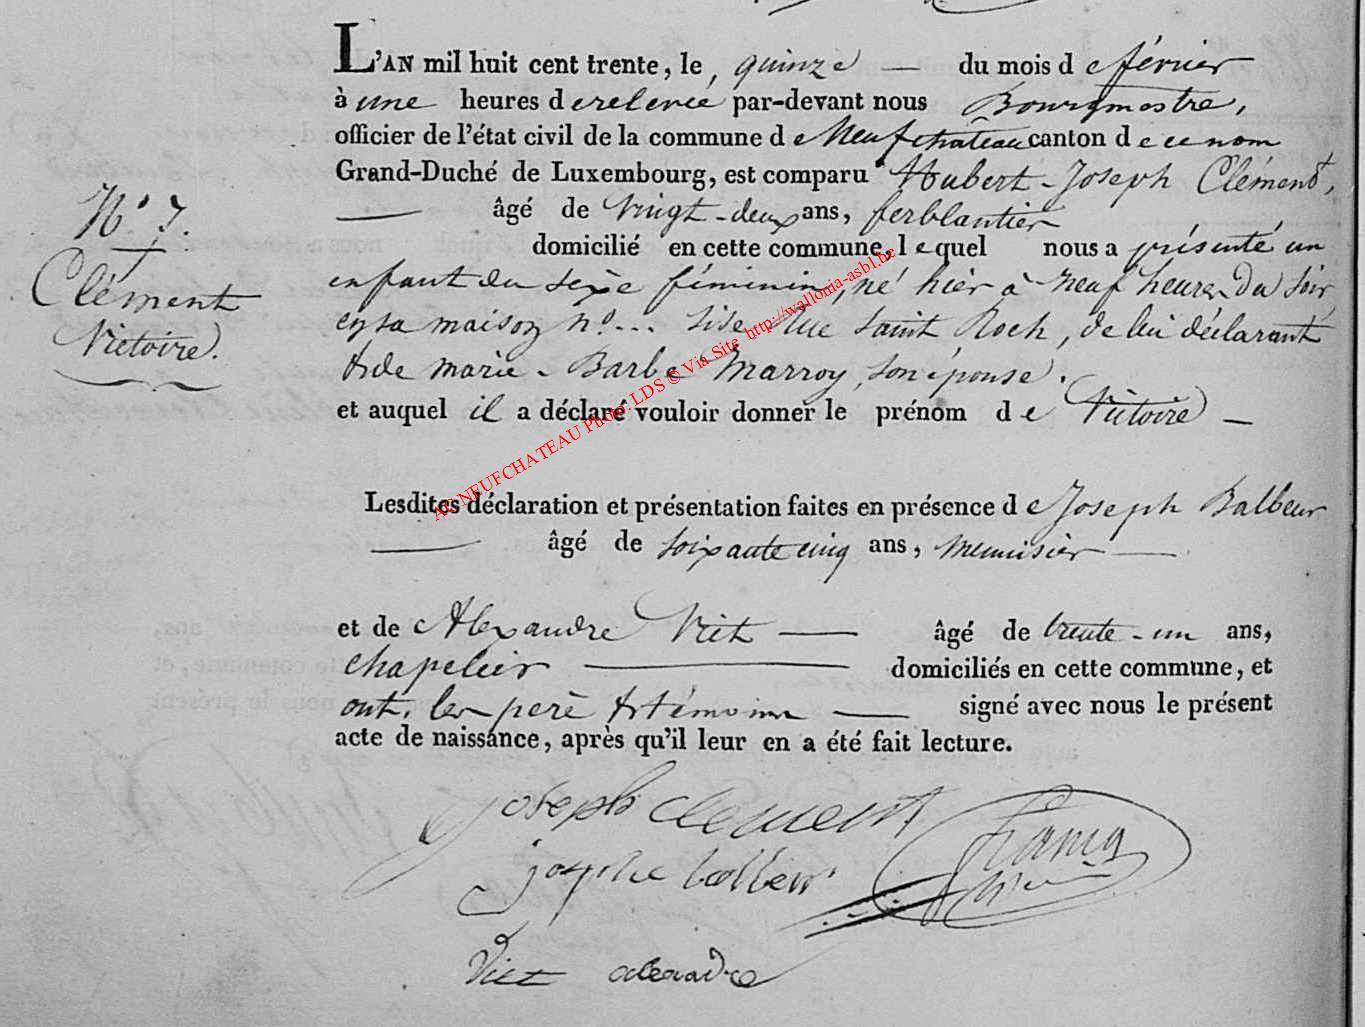 L'AN mil huit cent trente, le quinze — du mois de février
à une heures de relevée par-devant nous Bourgmestre,
officier de l'état civil de la commune de Neufchâteau canton de ce nom
Grand-Duché de Luxembourg, est comparu Hubert-Joseph Clément,
— âgé de vingt-deux ans, ferblantier
domicilié en cette commune, lequel nous a présenté un
enfant du sexe féminin, né hier à neuf heures du soir
en sa maison n.o ... sise Rue Saint Roch, de lui déclarant
& de marie-Barbe Marroy, son épouse.
et auquel il a déclaré vouloir donner le prénom de Victoire —
N.o 7.
Clément
Victoire.
AE NEUFCHATEAU Photo: LDS © Via Site http://wallonia-asbl.be
Lesdites déclaration et présentation faites en présence de Joseph Balbeur
— âgé de soixante cinq ans, menuisier —
et de Alexandre Viet — âgé de trente-un ans,
chapelier — domiciliés en cette commune, et
ont, les père & témoins — signé avec nous le présent
acte de naissance, après qu'il leur en a été fait lecture.
Joseph Clement
josephe balbeur
Viet alexandre